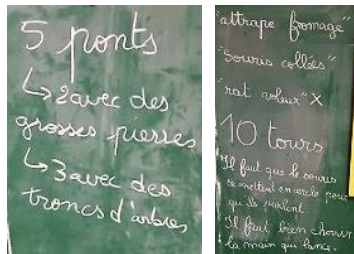 5 ponts
↳ 2 avec des
grosses pierres
↳ 3 avec des
troncs d'arbres
"attrape fromage"
"Souris collées"
"rat voleur" X
10 tours
Il faut que le souris
se mettent en cercle pour
qu'ils parlent!
Il faut bien choisir
la main qui lance.